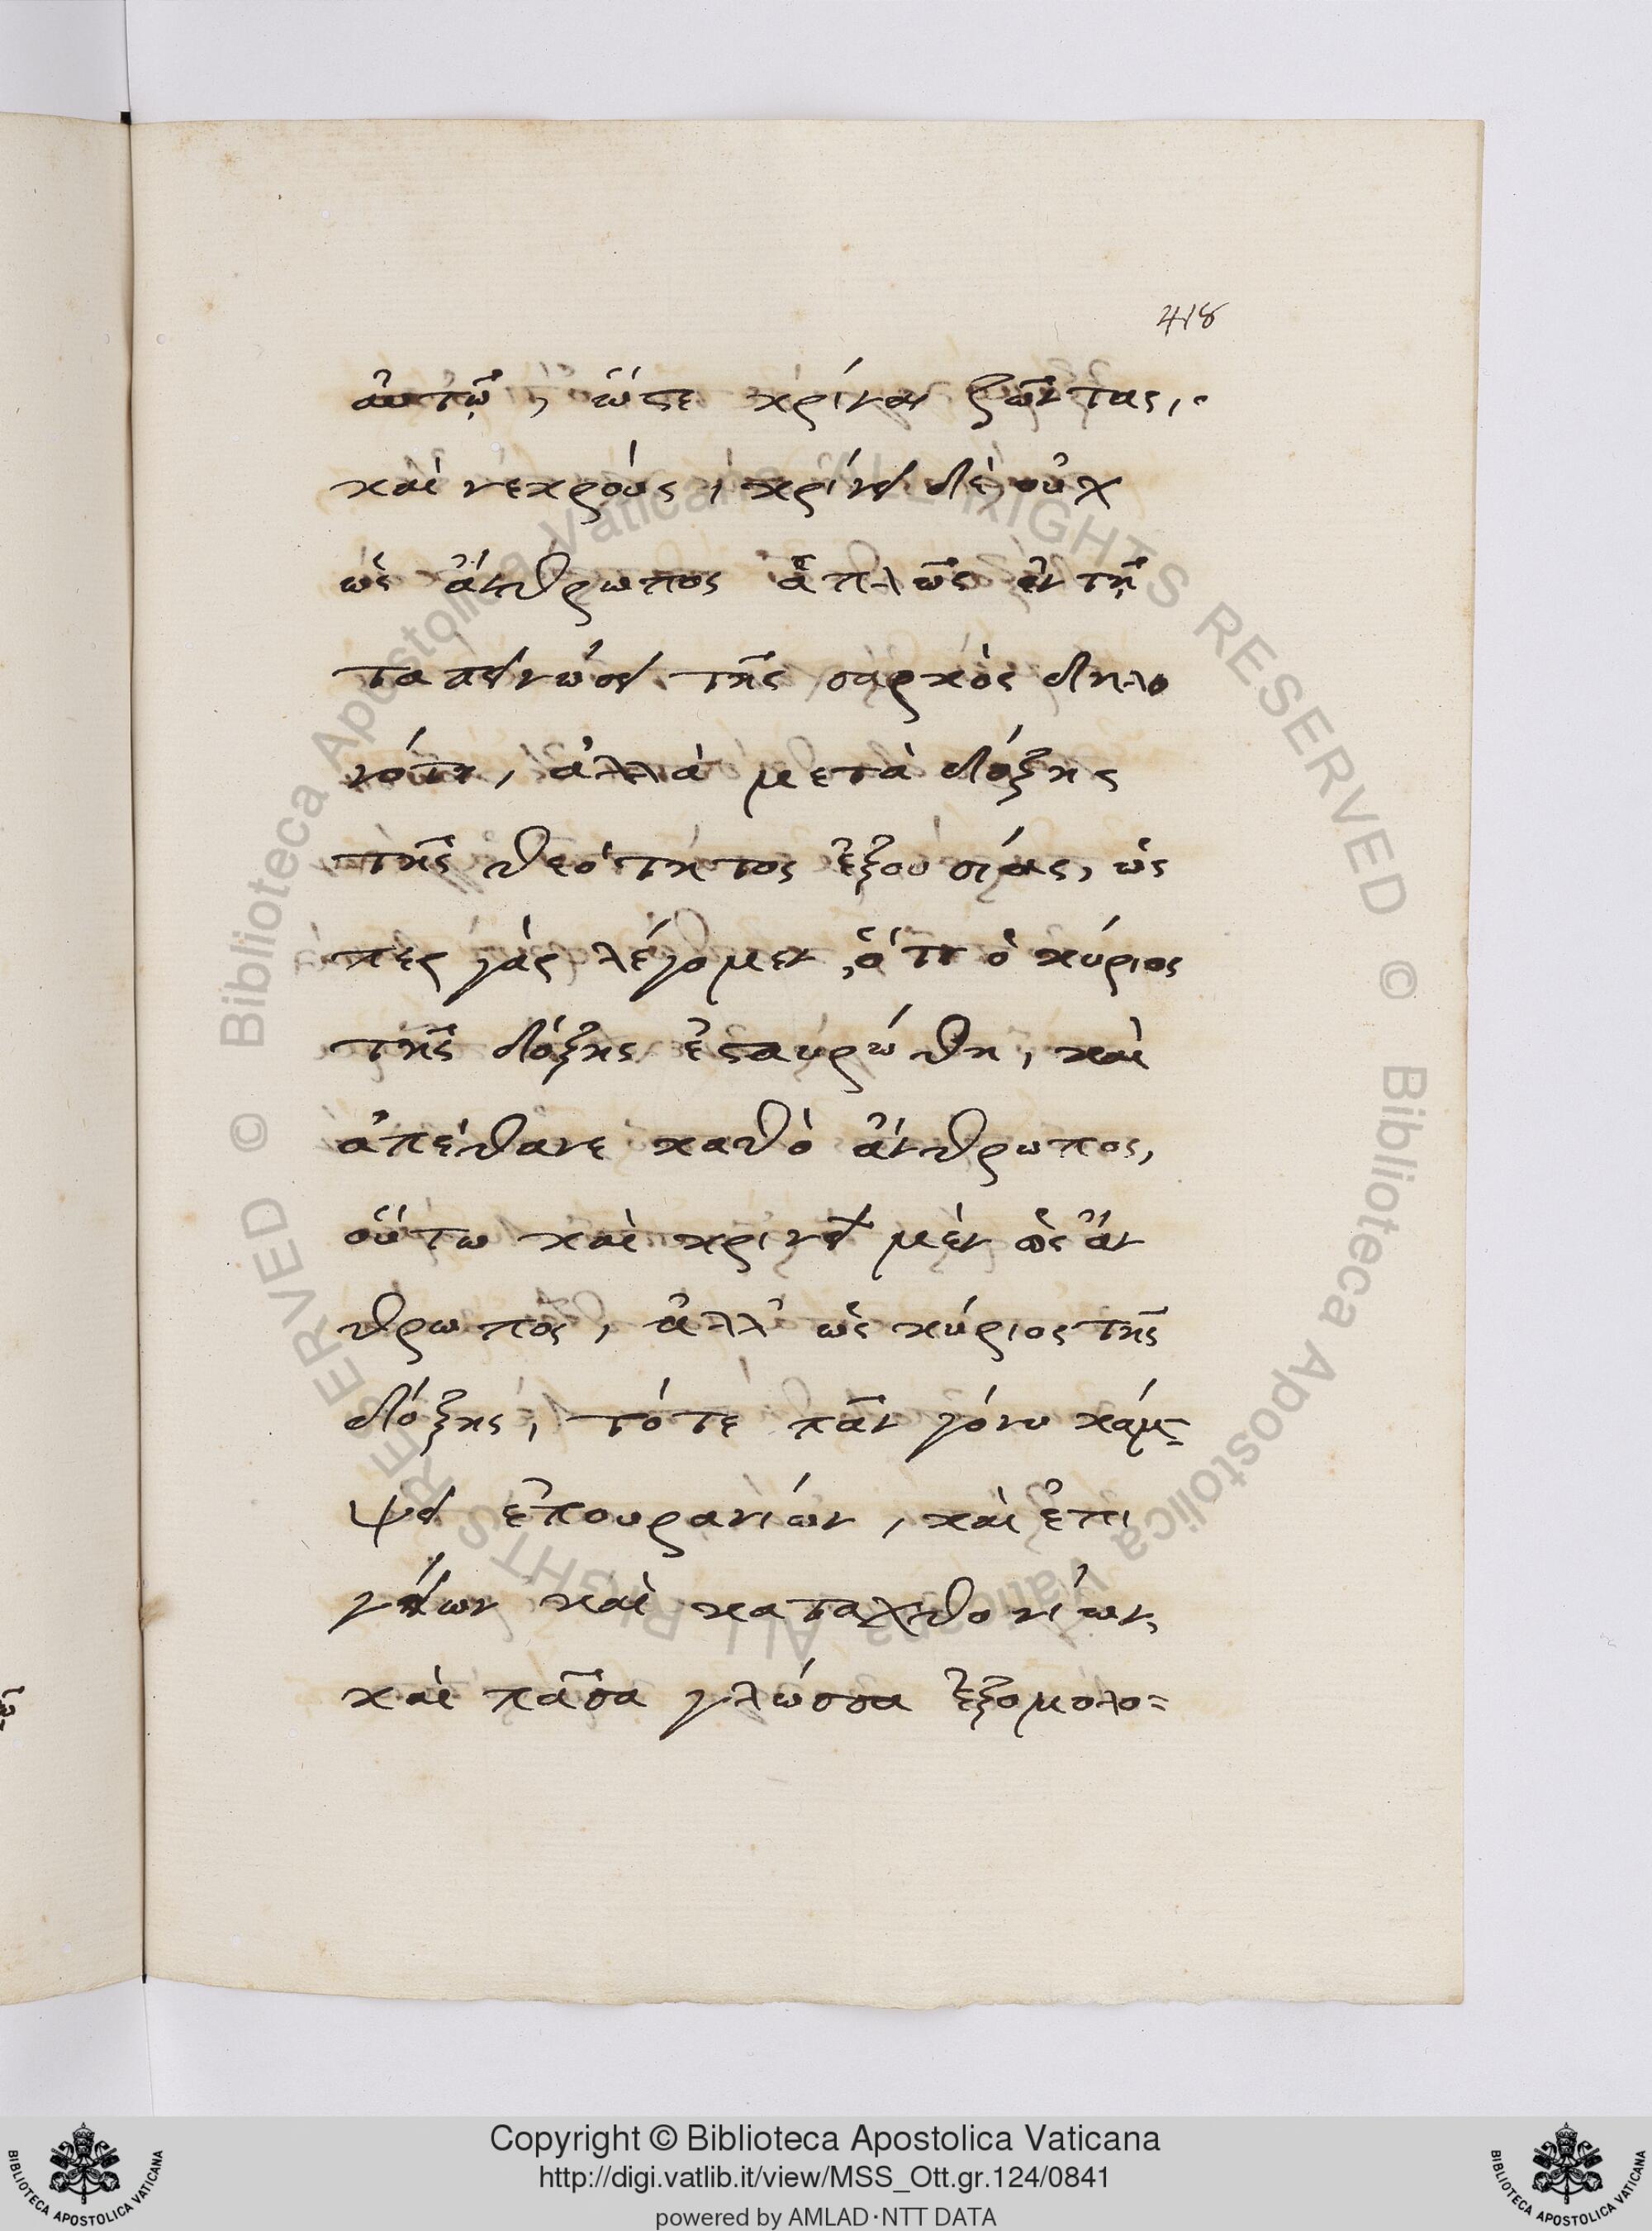 418
αὐτῷ, ὥστε κρίναι ζῶντας,
καὶ νεκρούς, κρίνει δὲ οὐχ
ὡς ἄνθρωπος ἁπλῶς ἐν τῇ
ταπεινώσει τῆς σαρκὸς δηλο
νότι, ἀλλὰ μετὰ δόξης
τῆς θεότητος ἐξουσίας, ὡς
περ γὰρ λέγομεν, ὅτι ὁ κύριος
τῆς δόξης ἐσταυρώθη, καὶ
ἀπέθανε καθὸ ἄνθρωπος,
οὕτω καὶ κρινεῖ μὲν ὡς ἄν
θρωπος, ἀλλ' ὡς κύριος τῆς
δόξης, τότε πᾶν γόνυ κάμ-
ψει ἐπουρανίων, καὶ ἐπι
γείων καὶ καταχθονίων,
καὶ πᾶσα γλώσσα ἐξομολο=
Biblioteca Apostolica Vaticana ALL RIGHTS RESERVED ©
Biblioteca Apostolica Vaticana ALL RIGHTS RESERVED ©
Copyright © Biblioteca Apostolica Vaticana
http://digi.vatlib.it/view/MSS_Ott.gr.124/0841
powered by AMLAD·NTT DATA
BIBLIOTECA APOSTOLICA VATICANA
BIBLIOTECA APOSTOLICA VATICANA